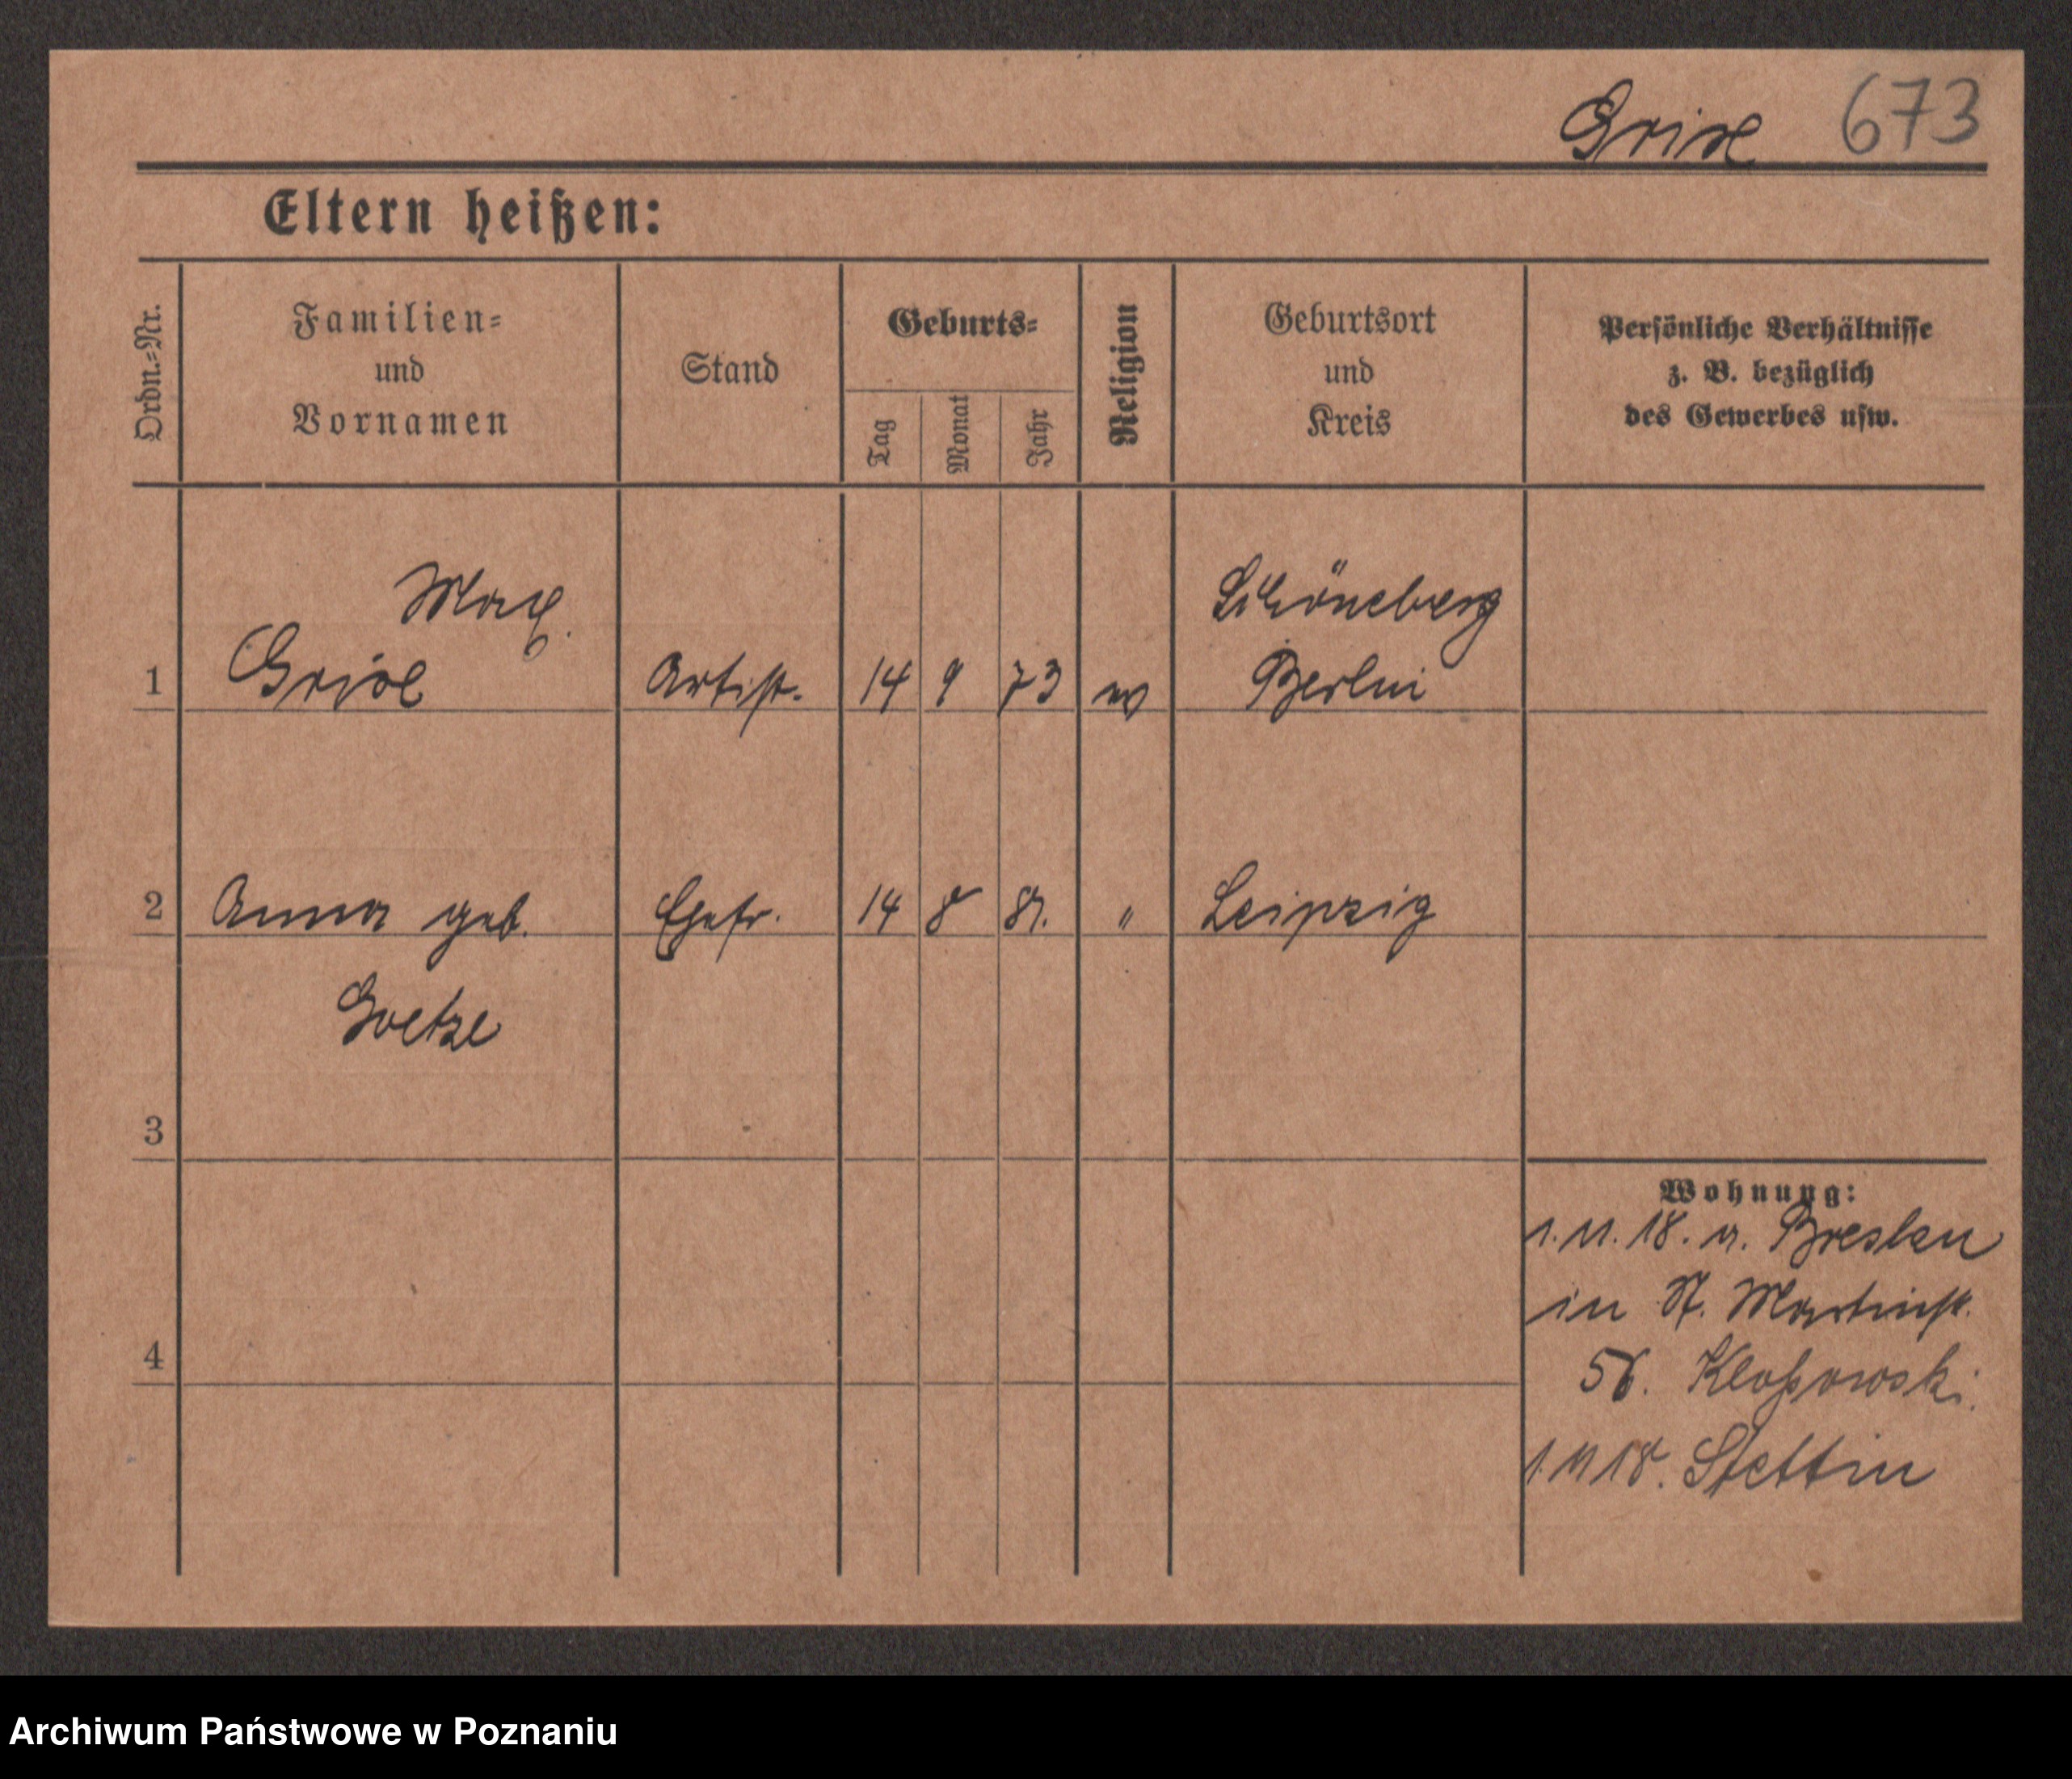 673
Eltern heißen:
Ordn.-Nr.
Familien-
und
Vornamen
Stand
Geburts-
Tag
Monat
Jahr
Religion
Geburtsort
und
Kreis
Persönliche Verhältnisse
z. B. bezüglich
des Gewerbes usw.
Max
Schöneberg
1 Artist. 14 9 73 Berlin
2 Anna geb. Ehefr. 14 8 " Leipzig
Goetze
3
4
Wohnung:
1.11.18. Breslau
in St. Martinstr.
Stettin
Archiwum Państwowe w Poznaniu